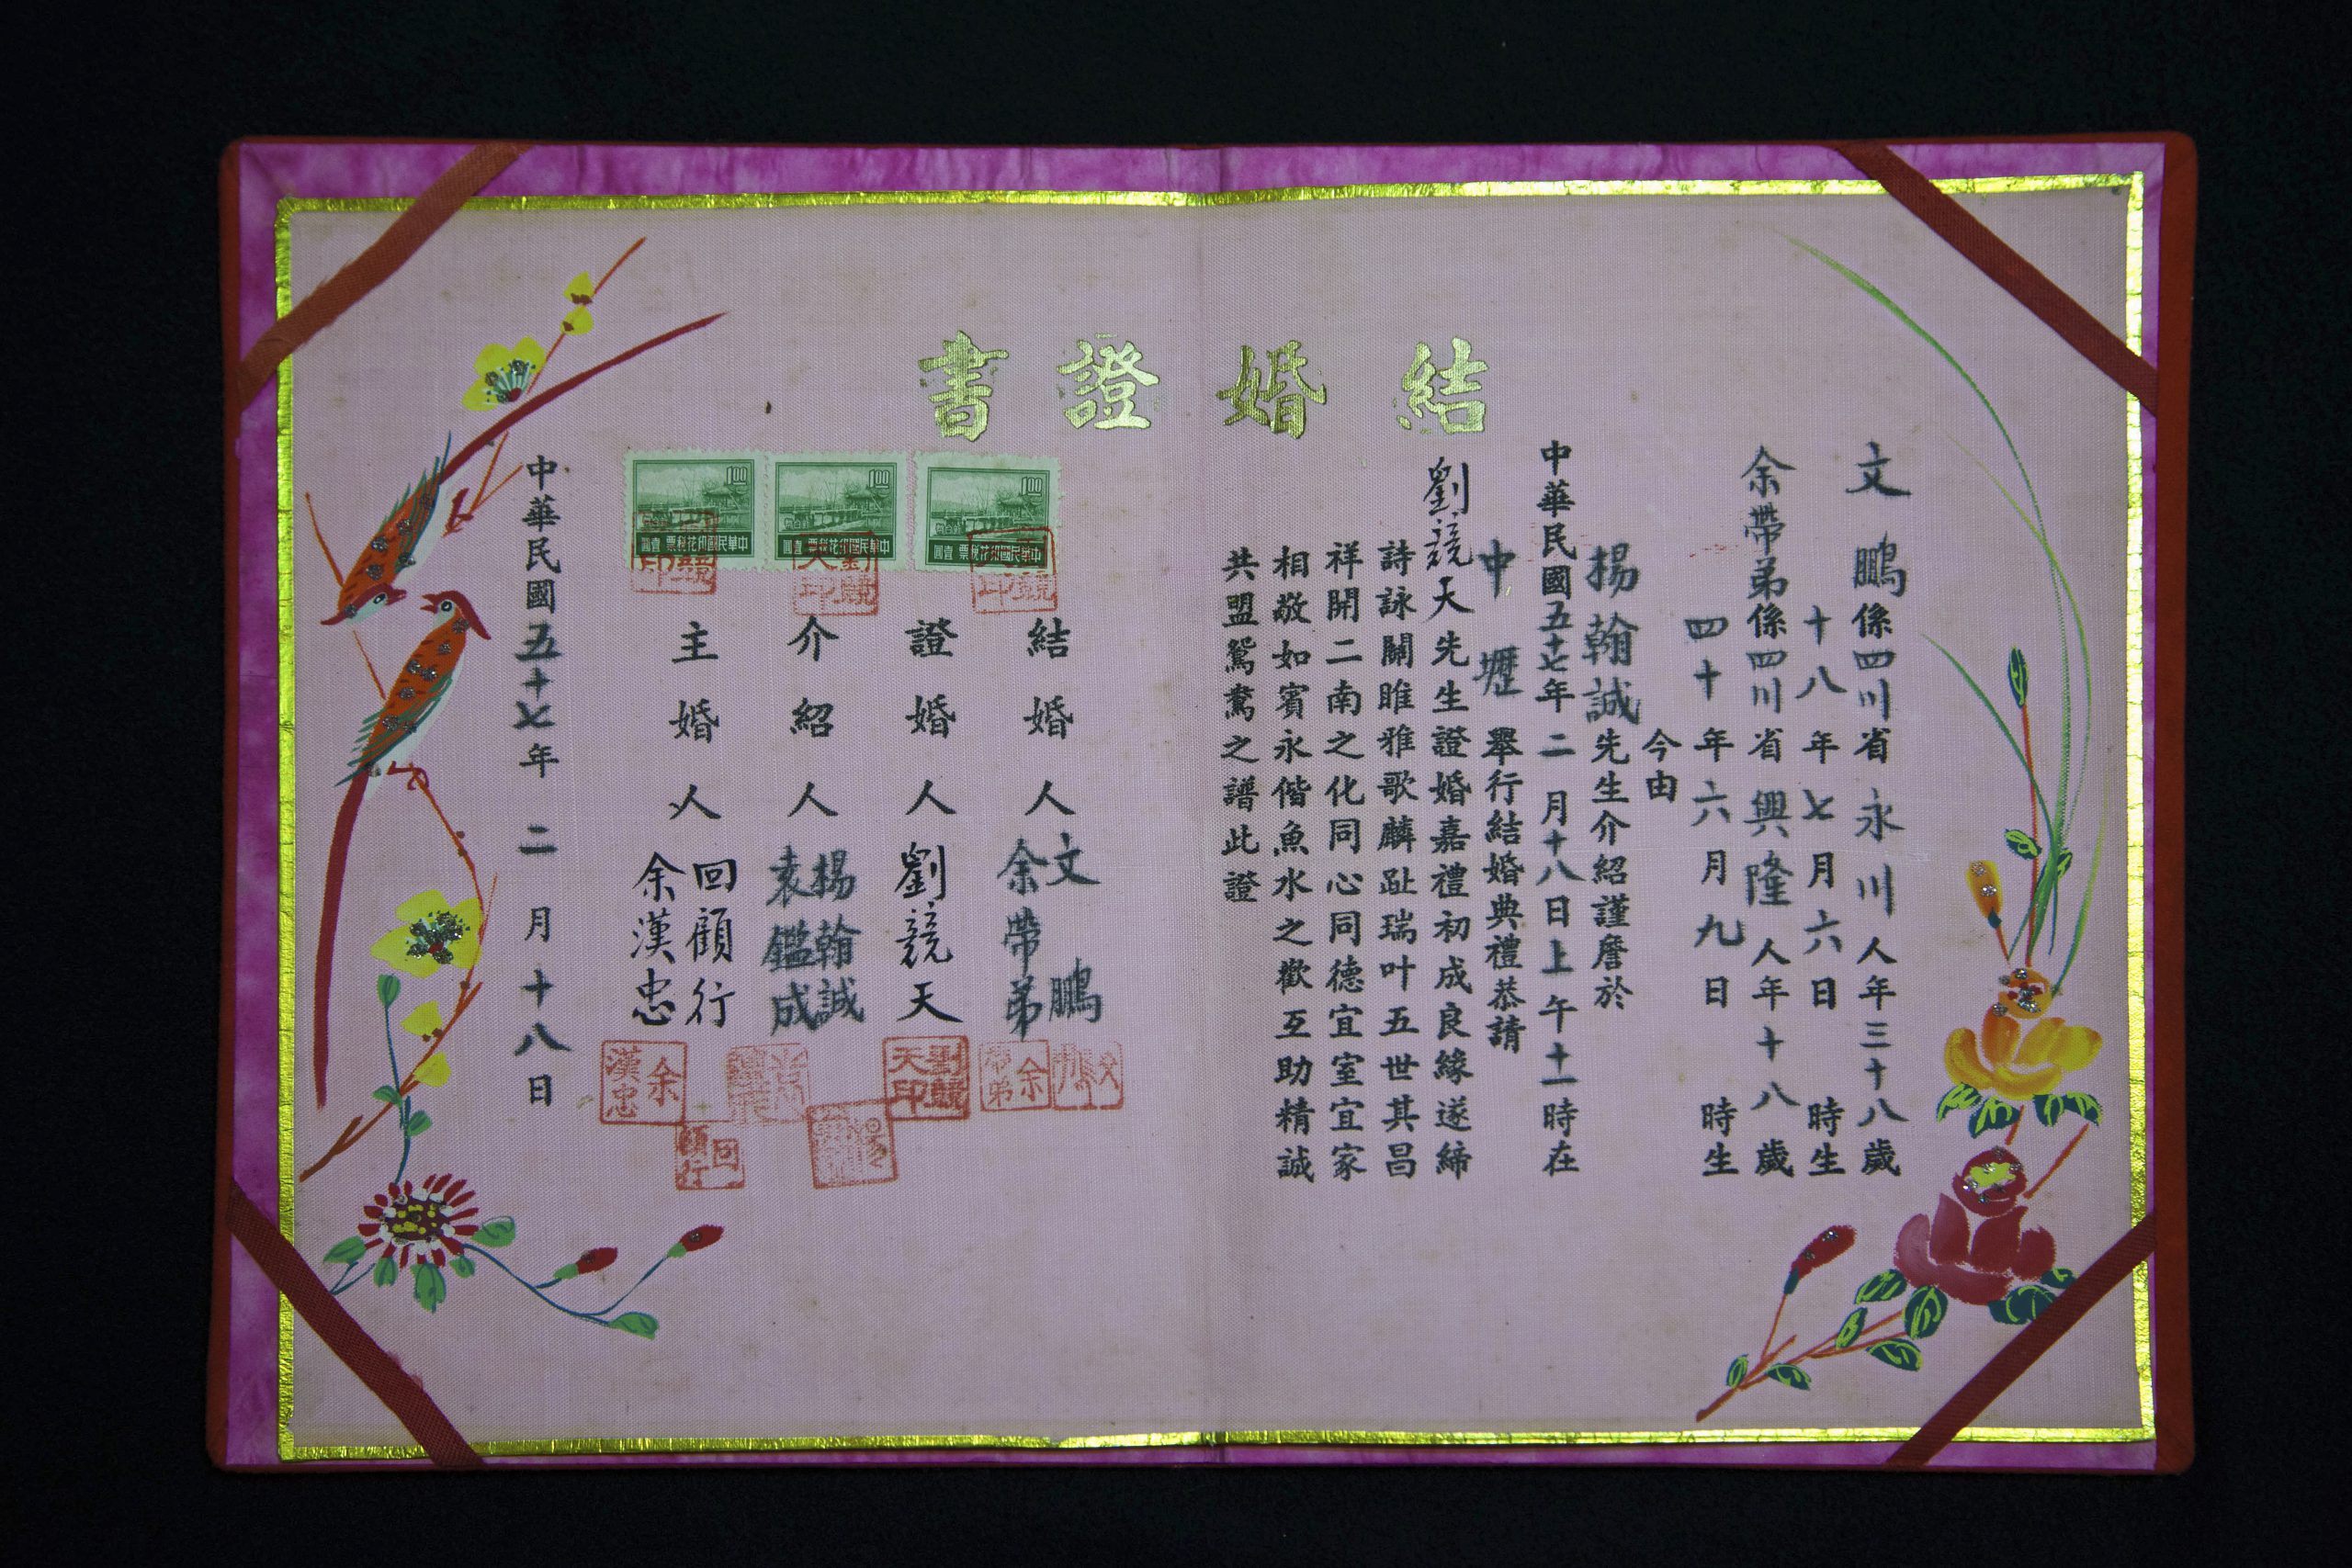 結婚證書
文鵬係四川省永川人年三十八歲
十八年七月六日 時生
余帶弟係四川省興隆人年十八歲
四十年六月九日 時生
今由
楊翰誠先生介紹謹詹於
中華民國五十七年二月十八日上午十一時在
中壢舉行結婚典禮恭請
劉競天先生證婚嘉禮初成良緣遂締
詩詠關雎雅歌麟趾瑞叶五世其昌
祥開二南之化同心同德宜室宜家
相敬如賓永偕魚水之歡互助精誠
共盟鴛鴦之譜此證
結婚人 文鵬
余帶弟
證婚人 劉競天
介紹人 楊翰誠
袁鑑成
主婚人 回顧行
余漢忠
中華民國五十七年二月十八日
1.00
中華民國印花稅票 壹圓
1.00
中華民國印花稅票 壹圓
1.00
中華民國印花稅票 壹圓
劉競天印
劉競天印
劉競天印
余帶弟
劉競天印
余漢忠
回顧行